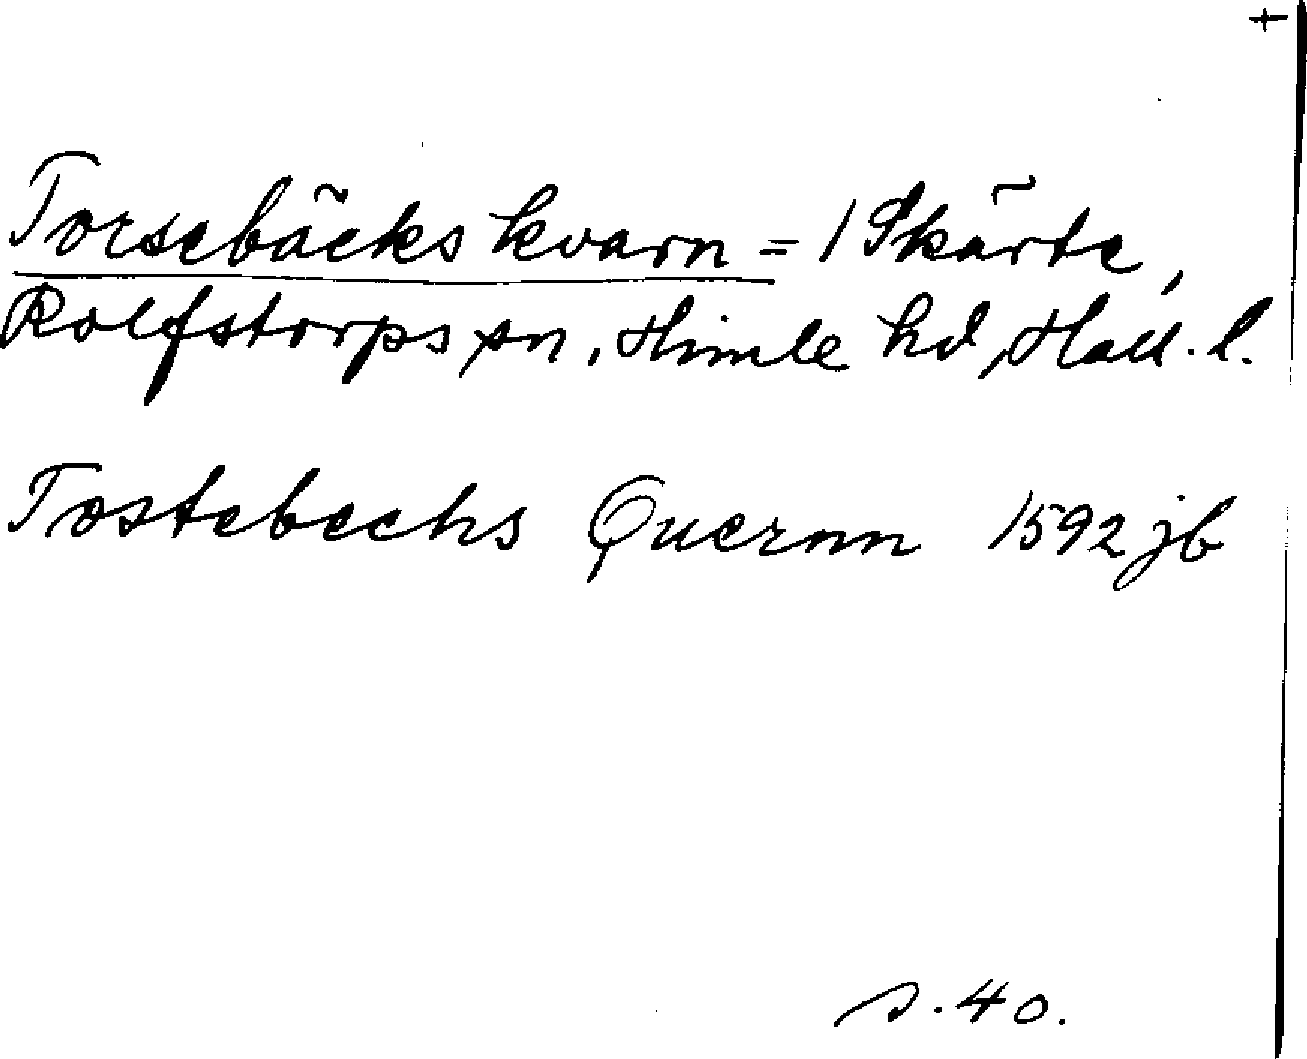 +
Torsebäcks kvarn = 1 Skärte,
Rolfstorps sn, Himle hd, Hall. l.
Tostebechs Quernn 1592 jb
s. 40.